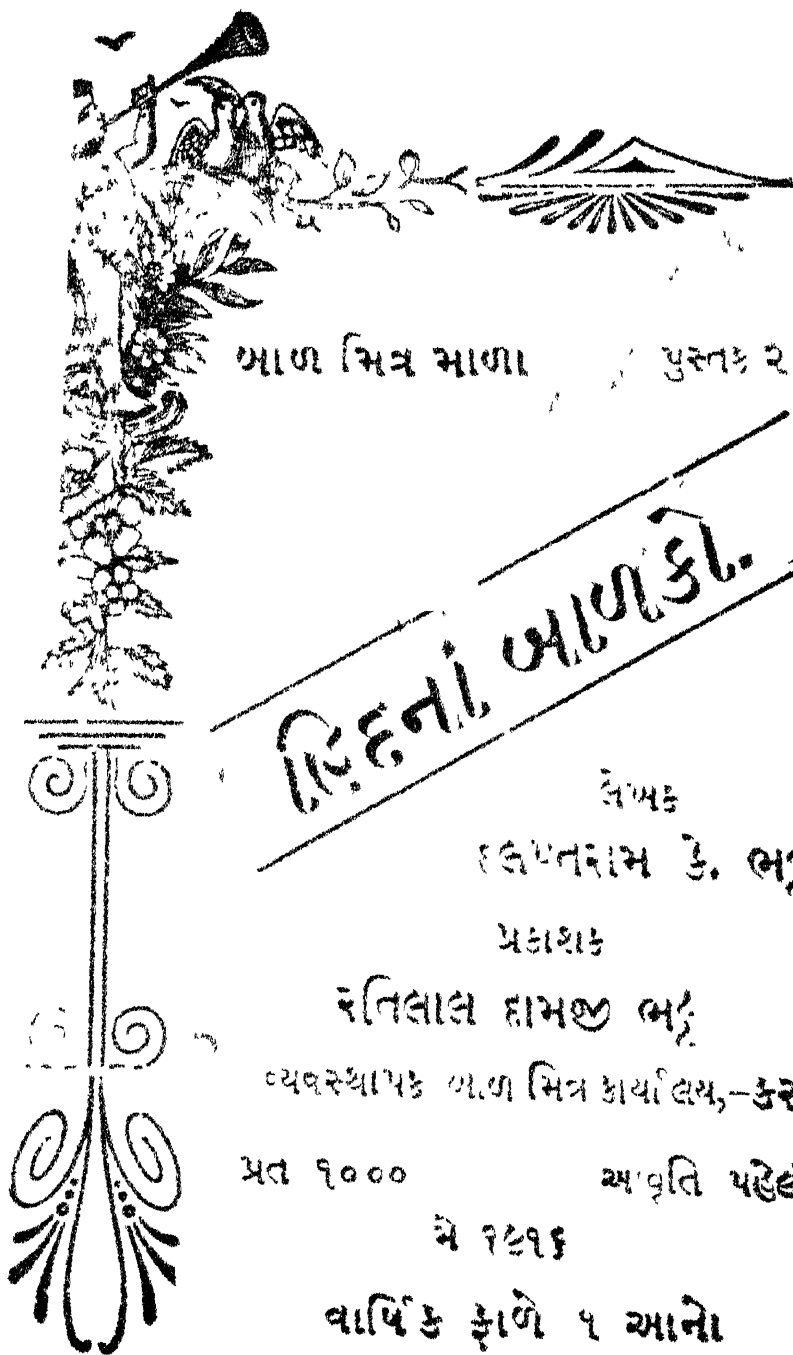 બાળ મિત્ર માળા પુસ્તક ૨
હિંદનાં બાળકો.
લેખક
દલપતરામ કે. ભટ્ટ
પ્રકાશક
રતિલાલ દામજી ભટ્ટ
વ્યવસ્થાપક બાળ મિત્ર કાર્યાલય,-
પ્રત ૧૦૦૦ આવૃતિ પહેલી
મે ૧૯૧૬
વાર્ષિક ફાળો ૧ આનો